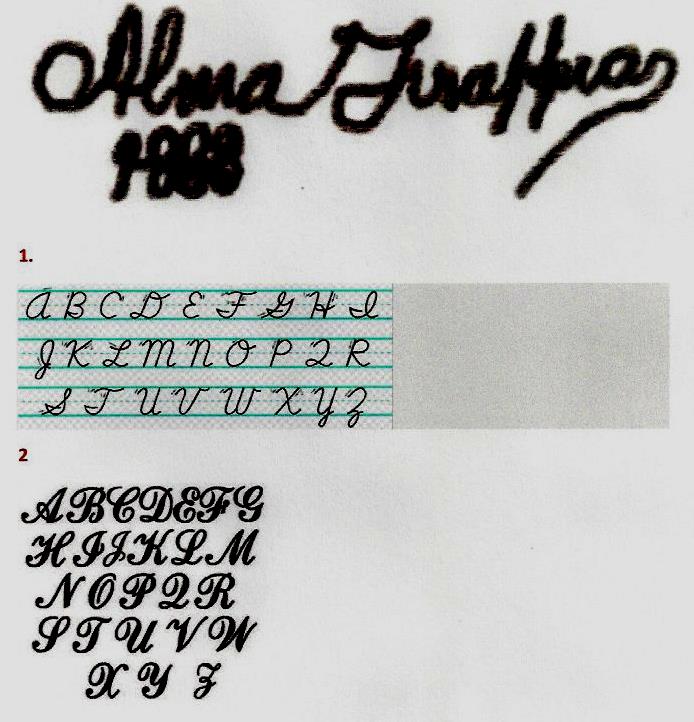 Alma
1888
1.
A B C D E F G H I
J K L M N O P Q R
S T U V W X Y Z
2
ABCDEFG
HIJKLM
NOPQR
STUVW
X Y Z